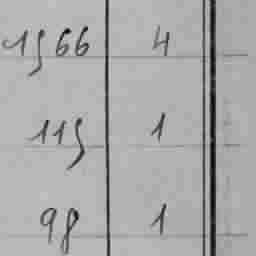 1566 4
115 1
98 1